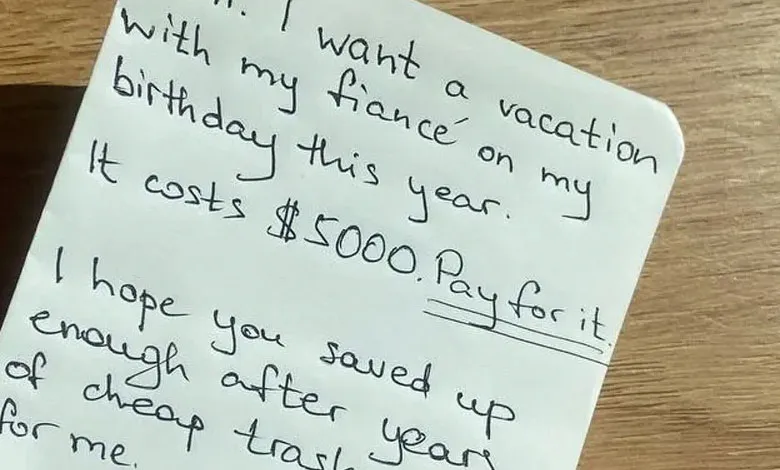 I want a vacation
with my fiancé on my
birthday this year.
It costs $5000. Pay for it.
I hope you saved up
enough after years
of cheap
for me.